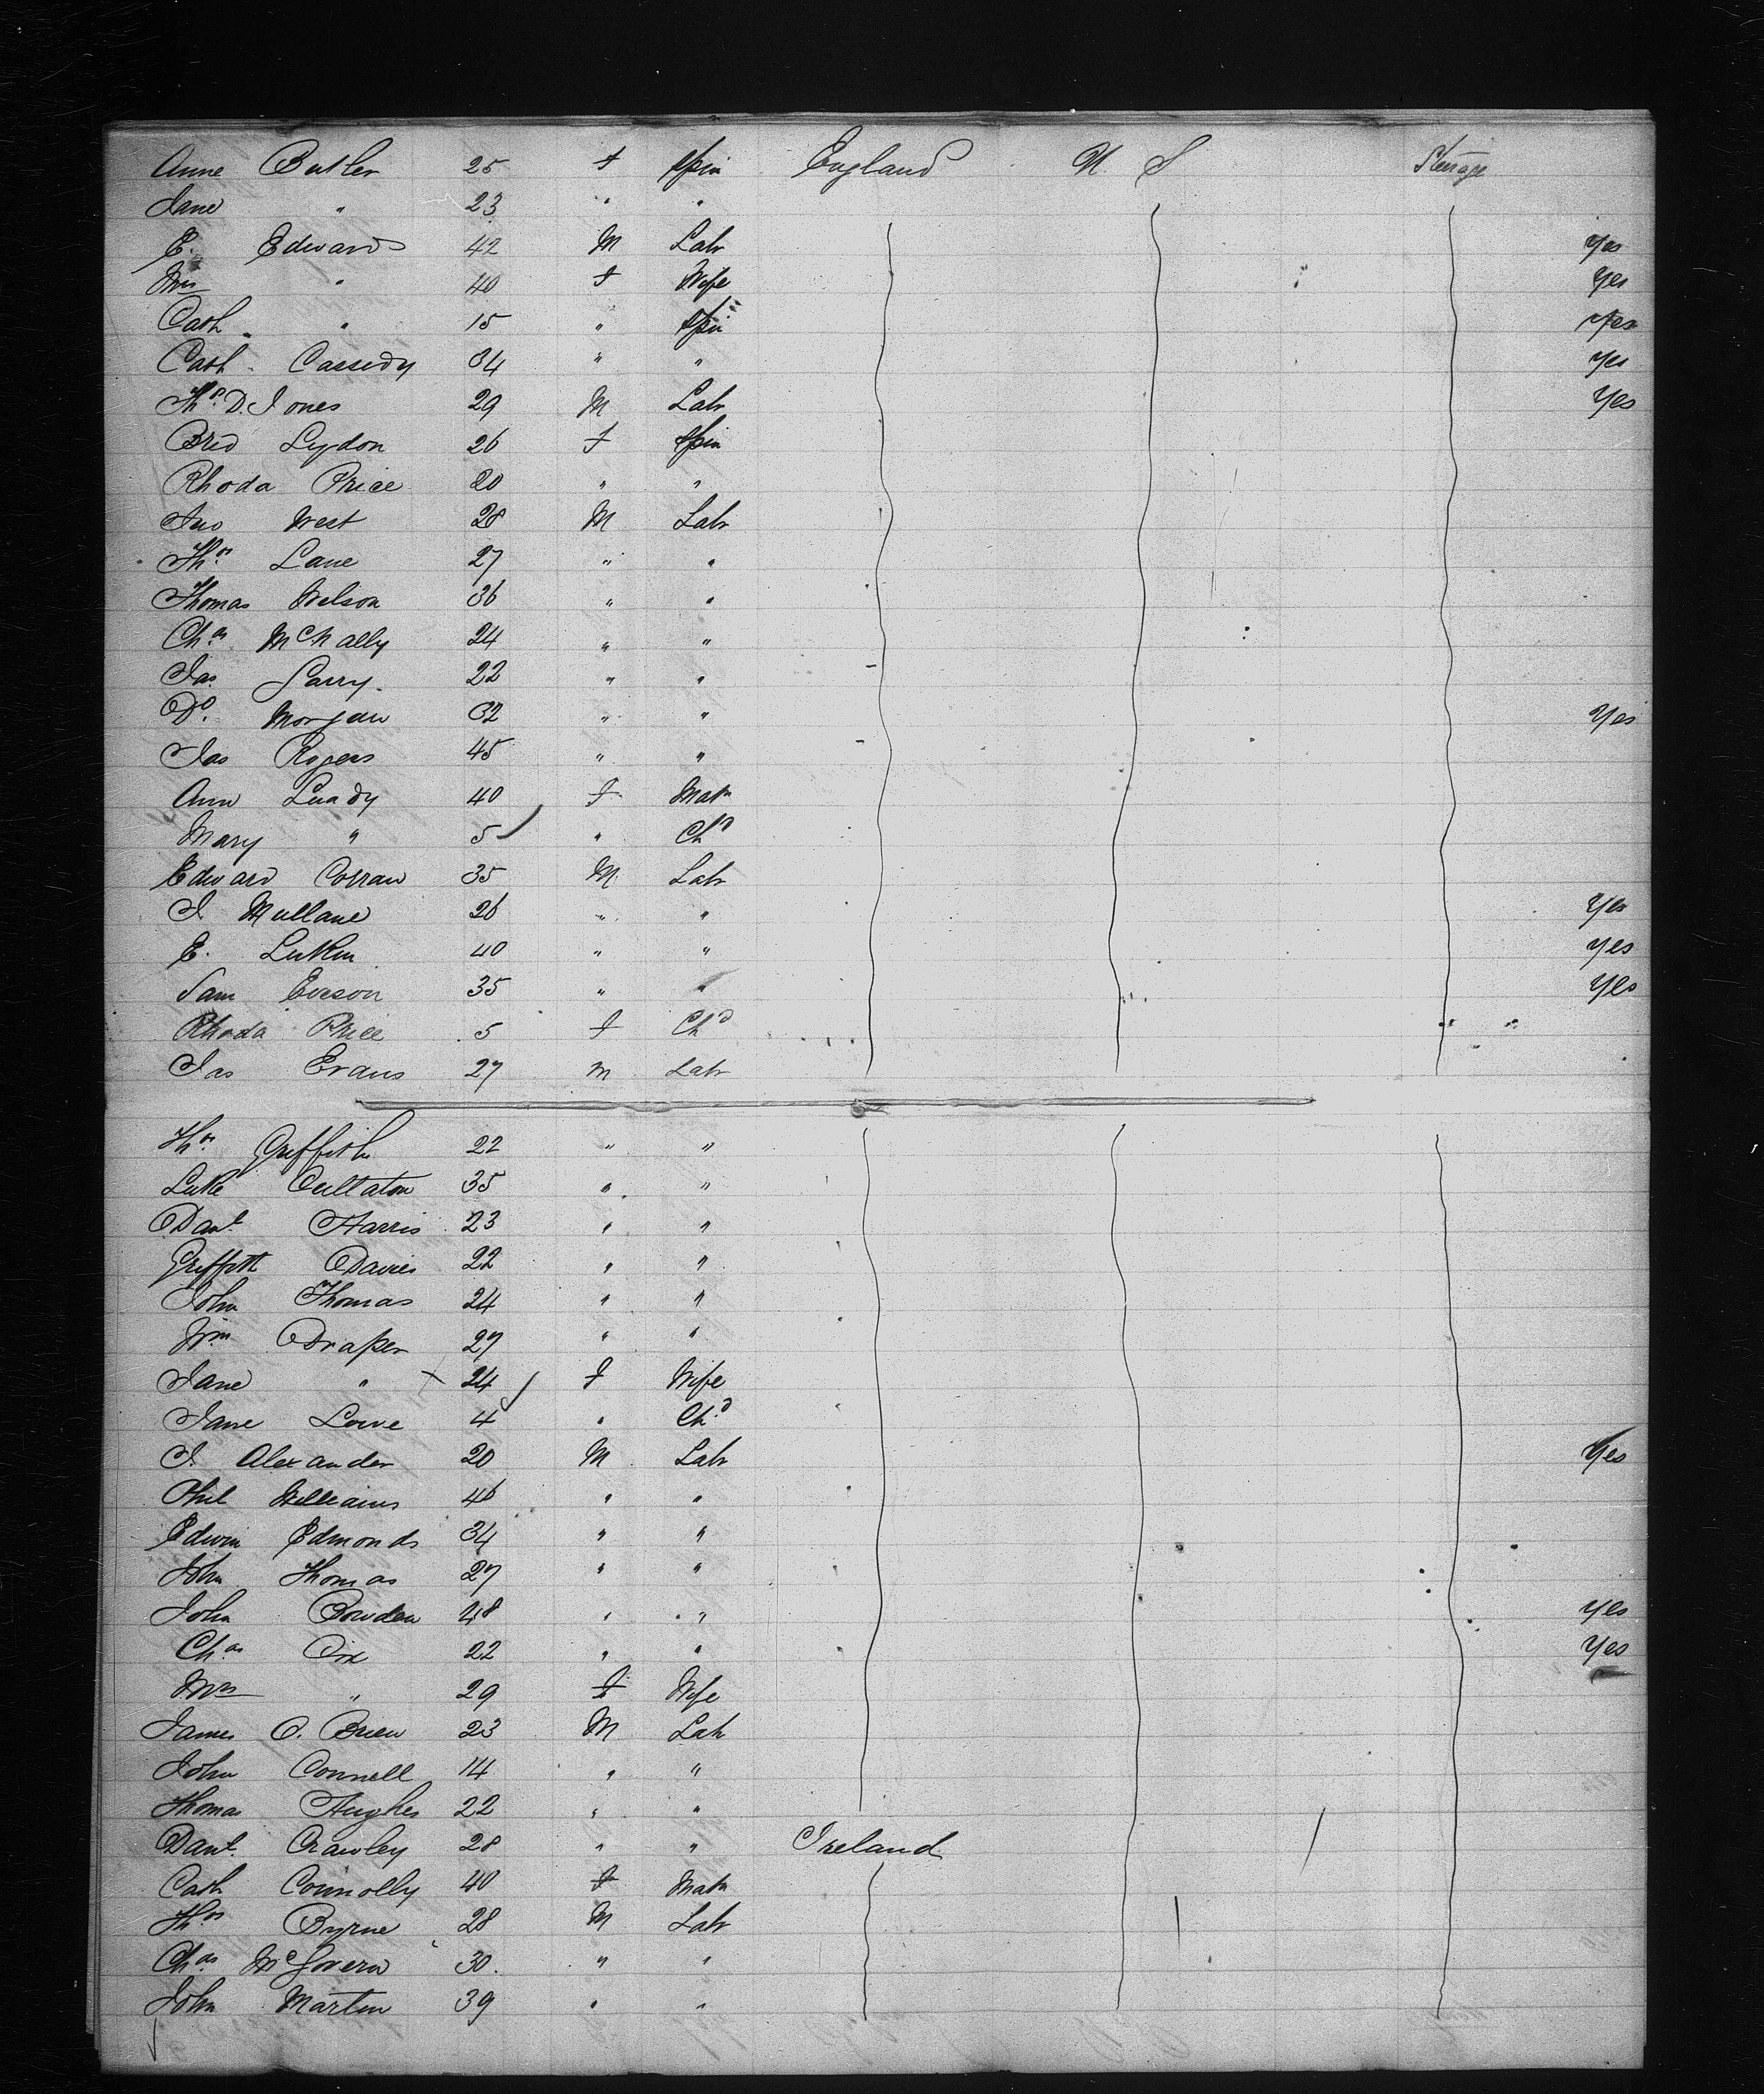 Anne Butler 25 f Spin England U S Steerage
Jane " 23 " "
E. Edwards 42 M Labr Yes
Mrs " 40 f Wife Yes
Cath " 15 " Spin Yes
Cath Cassidy 34 " " Yes
Thos D. Jones 29 M Labr Yes
Brid Lydon 26 f Spin
Rhoda Price 20 " "
Jno West 28 M Labr
Thos Lane 27 " "
Thomas Welson 36 " "
Chas McNally 24 " "
Jas Garry 22 " "
Do Morgan 32 " " Yes
Jas Rogers 45 " "
Ann 40 f Matn
Mary " 5 " Chd
Edward 35 M Labr
J Mullane 26 " " Yes
E. Lutkin 40 " " Yes
Sam Eveson 35 " " Yes
Rhoda Price 5 f Chd
Jas Evans 27 M Labr
Thos Griffith 22 " "
Luke 35 " "
Danl Harris 23 " "
Griffith Davies 22 " "
John Thomas 24 " "
Wm Draper 27 " "
Jane " 24 f Wife
Jane Lowe 4 " Chd
J. Alexander 20 M Labr Yes
Phil Williams 46 " "
Edwin Edmonds 34 " "
John Thomas 27 " "
John Bowden 48 " " Yes
Chas 22 " " Yes
Mrs " 29 f Wife
James O. Brien 23 M Lab
John Connell 14 " "
Thomas Hughes 22 " "
Danl. Crawley 28 " " Ireland
Cath Connolly 40 f Matn
Thos Byrne 28 M Labr
Chas McGovern 30. " "
John Martin 39 " "